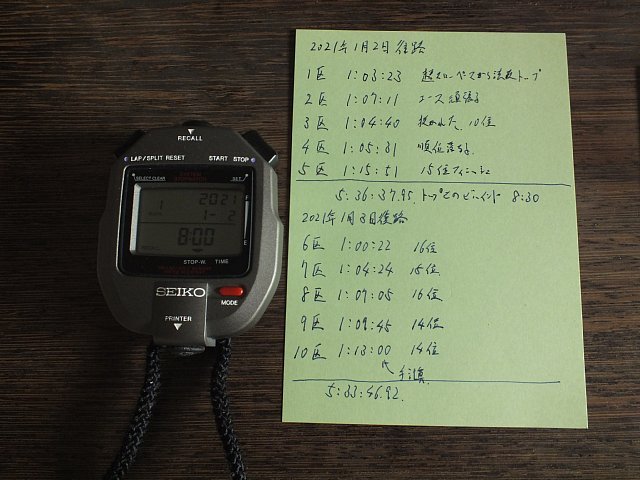 RECALL
LAP/SPLIT RESET START STOP
SELECT/CLEAR SYSTEM STOPWATCH SET
1 2021
1-2
8:00
STOP-W. TIME
SEIKO
MODE
PRINTER
2021年1月2日 往路
1区 1:03:23 超スローペースから法政トップ
2区 1:07:11 エース頑張る
3区 1:04:40 抜かれた 10位
4区 1:05:31 順位落ちる
5区 1:15:51 15位フィニッシュ
5:36:37.95. トップとのビハインド 8:30
2021年1月3日復路
6区 1:00:22 16位
7区 1:04:24 15位
8区 1:07:05 16位
9区 1:09:45 14位
10区 1:13:00 14位
手計測
5:33:46.92.